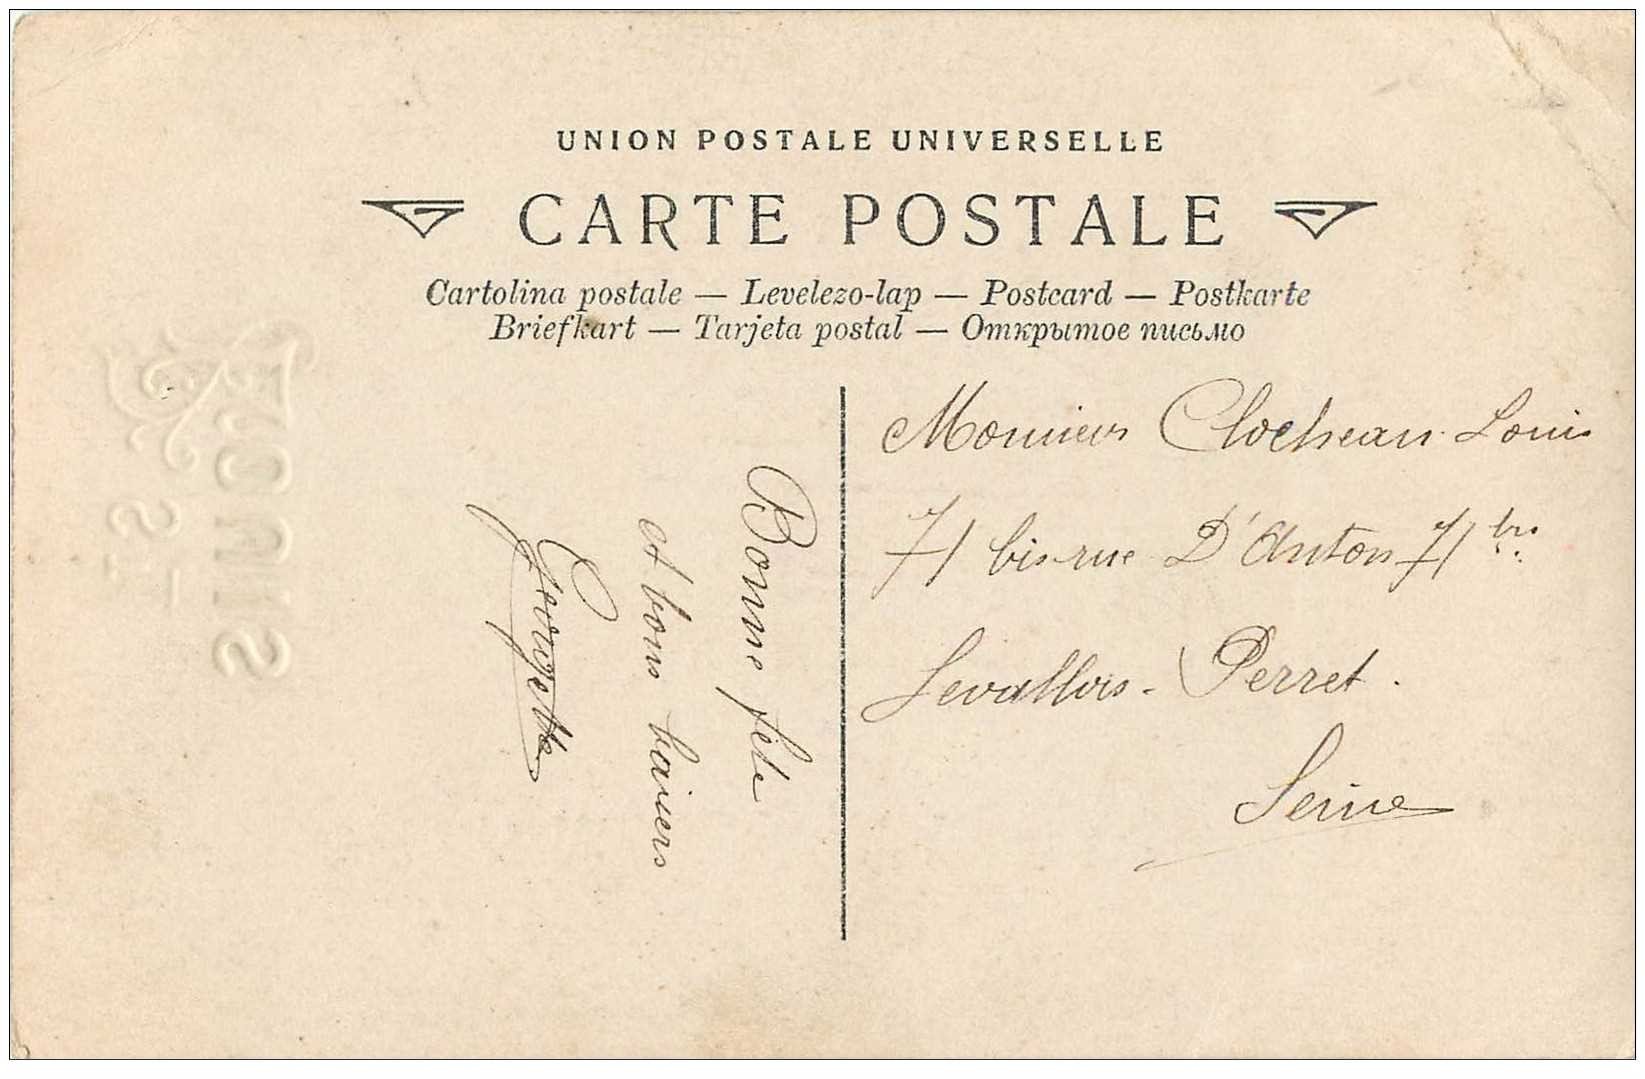 UNION POSTALE UNIVERSELLE
CARTE POSTALE
Cartolina postale — Levelezo-lap — Postcard — Postkarte
Briefkart — Tarjeta postal — Открытое письмо
Bonne fête
et bons baisers
Georgette
Monsieur Clochean Louis
71 bis rue D'Anton 71 bis
Levallois-Perret.
Seine
St-
LOUIS